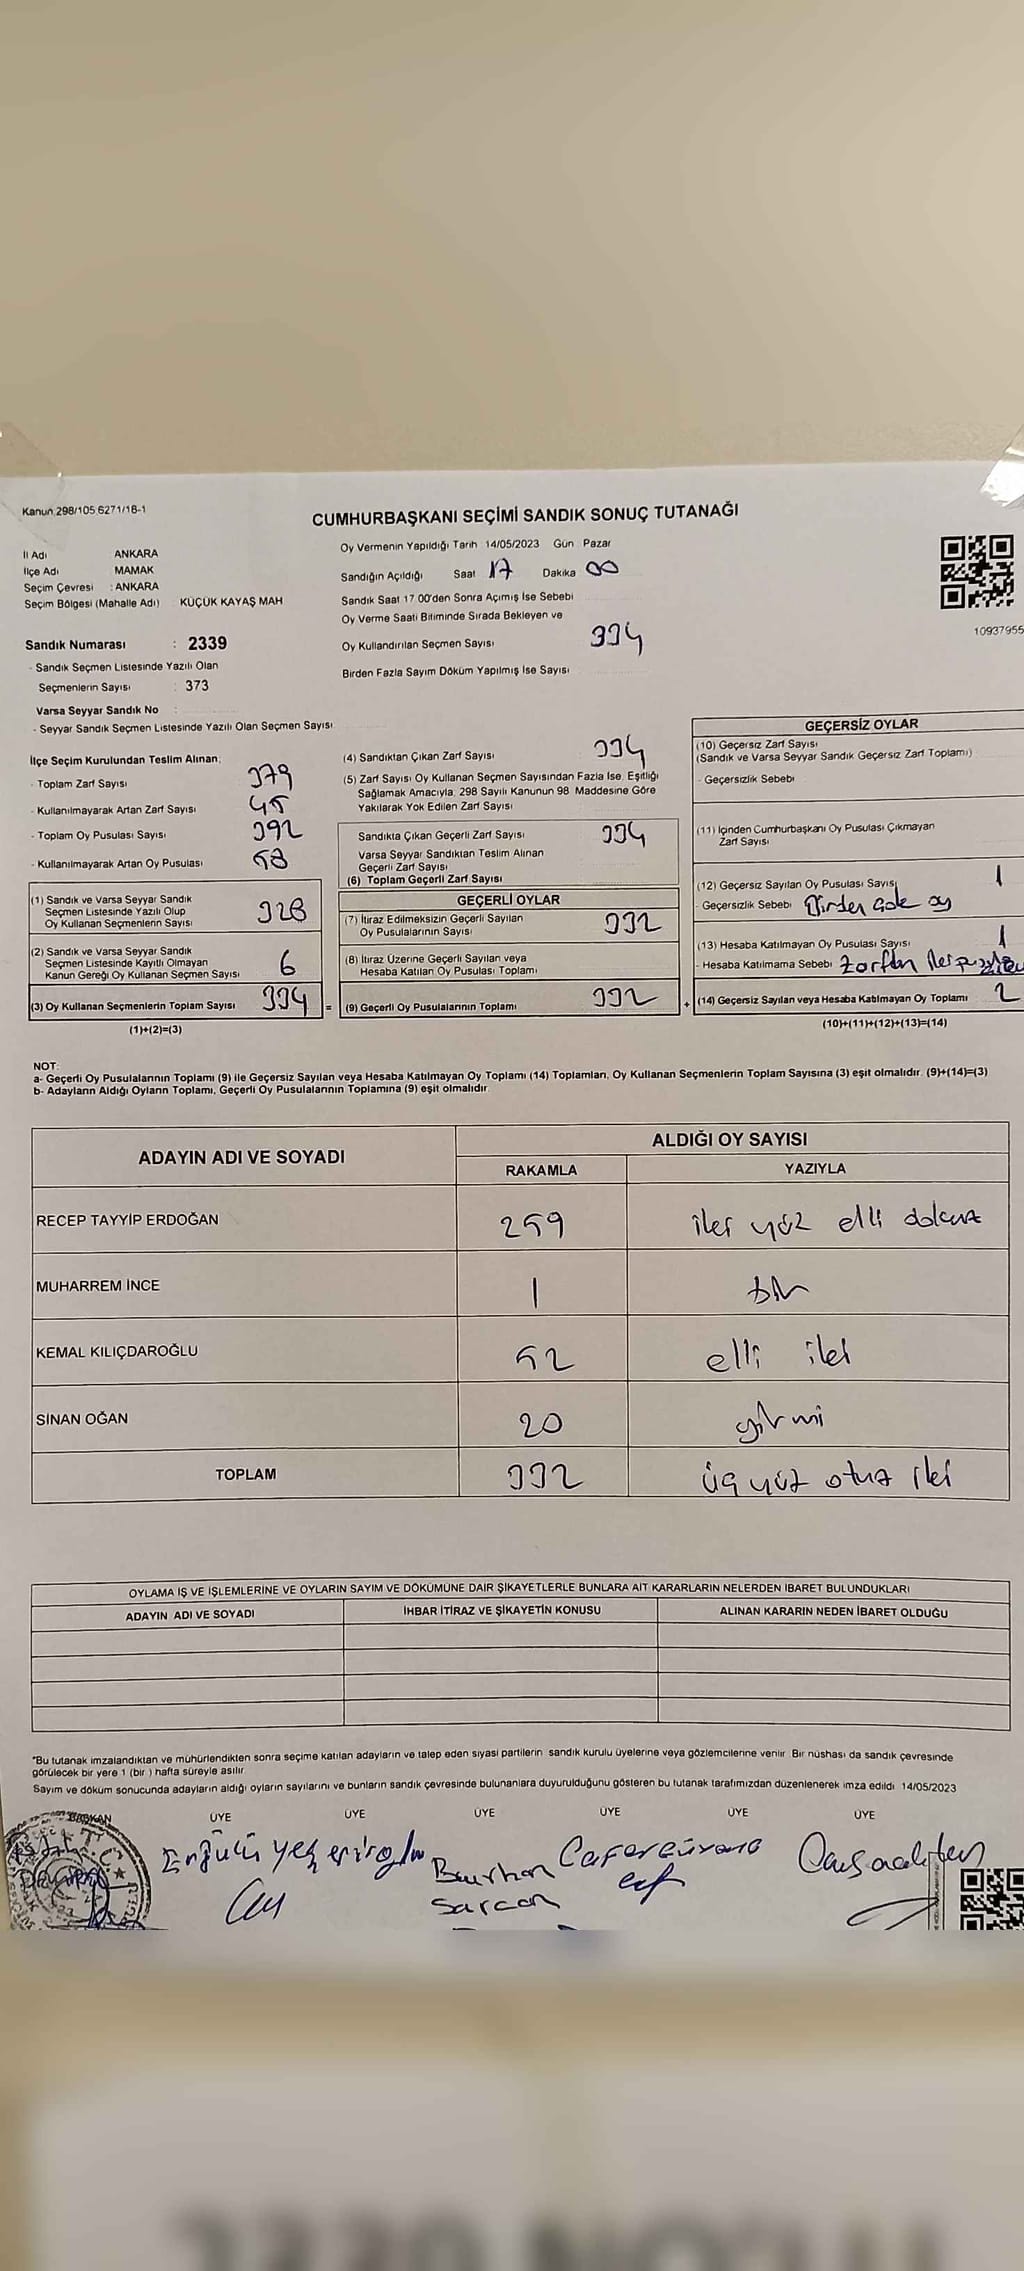 Kanun 298/105,6271/18-1
CUMHURBAŞKANI SEÇİMİ SANDIK SONUÇ TUTANAĞI
İl Adı ANKARA
İlçe Adı MAMAK
Seçim Çevresi : ANKARA
Seçim Bölgesi (Mahalle Adı) KÜÇÜK KAYAŞ MAH
Oy Vermenin Yapıldığı Tarih 14/05/2023 Gün Pazar
Sandığın Açıldığı Saat 17 Dakika 00
Sandık Saat 17.00'den Sonra Açımış İse Sebebi
Oy Verme Saati Bitiminde Sırada Bekleyen ve
Oy Kullandırılan Seçmen Sayısı 334
Birden Fazla Sayım Döküm Yapılmış İse Sayısı
10937955
Sandık Numarası : 2339
- Sandık Seçmen Listesinde Yazılı Olan
Seçmenlerin Sayısı : 373
Varsa Seyyar Sandık No :
- Seyyar Sandık Seçmen Listesinde Yazılı Olan Seçmen Sayısı
İlçe Seçim Kurulundan Teslim Alınan;
- Toplam Zarf Sayısı 379
- Kullanılmayarak Artan Zarf Sayısı 45
- Toplam Oy Pusulası Sayısı 392
- Kullanılmayarak Artan Oy Pusulası 58
(1) Sandık ve Varsa Seyyar Sandık
Seçmen Listesinde Yazılı Olup
Oy Kullanan Seçmenlerin Sayısı 328
(2) Sandık ve Varsa Seyyar Sandık
Seçmen Listesinde Kayıtlı Olmayan
Kanun Gereği Oy Kullanan Seçmen Sayısı 6
(3) Oy Kullanan Seçmenlerin Toplam Sayısı 334 =
(1)+(2)=(3)
(4) Sandıktan Çıkan Zarf Sayısı 334
(5) Zarf Sayısı Oy Kullanan Seçmen Sayısından Fazla İse, Eşitliği
Sağlamak Amacıyla, 298 Sayılı Kanunun 98. Maddesine Göre
Yakılarak Yok Edilen Zarf Sayısı
Sandıkta Çıkan Geçerli Zarf Sayısı 334
Varsa Seyyar Sandıktan Teslim Alınan
Geçerli Zarf Sayısı
(6) Toplam Geçerli Zarf Sayısı
GEÇERLİ OYLAR
(7) İtiraz Edilmeksizin Geçerli Sayılan
Oy Pusulalarının Sayısı 332
(8) İtiraz Üzerine Geçerli Sayılan veya
Hesaba Katılan Oy Pusulası Toplamı
(9) Geçerli Oy Pusulalarının Toplamı 332 +
GEÇERSİZ OYLAR
(10) Geçersiz Zarf Sayısı
(Sandık ve Varsa Seyyar Sandık Geçersiz Zarf Toplamı)
- Geçersizlik Sebebi
(11) İçinden Cumhurbaşkanı Oy Pusulası Çıkmayan
Zarf Sayısı
(12) Geçersiz Sayılan Oy Pusulası Sayısı 1
- Geçersizlik Sebebi Birden çok oy
(13) Hesaba Katılmayan Oy Pusulası Sayısı 1
- Hesaba Katılmama Sebebi zarftan
(14) Geçersiz Sayılan veya Hesaba Katılmayan Oy Toplamı 2
(10)+(11)+(12)+(13)=(14)
NOT:
a- Geçerli Oy Pusulalarının Toplamı (9) ile Geçersiz Sayılan veya Hesaba Katılmayan Oy Toplamı (14) Toplamları, Oy Kullanan Seçmenlerin Toplam Sayısına (3) eşit olmalıdır. (9)+(14)=(3)
b- Adayların Aldığı Oyların Toplamı, Geçerli Oy Pusulalarının Toplamına (9) eşit olmalıdır
ADAYIN ADI VE SOYADI ALDIĞI OY SAYISI
RAKAMLA YAZIYLA
RECEP TAYYİP ERDOĞAN 259 iki yüz elli dokuz
MUHARREM İNCE 1 bir
KEMAL KILIÇDAROĞLU 52 elli iki
SİNAN OĞAN 20 yirmi
TOPLAM 332 üç yüz otuz iki
OYLAMA İŞ VE İŞLEMLERİNE VE OYLARIN SAYIM VE DÖKÜMÜNE DAİR ŞİKAYETLERLE BUNLARA AİT KARARLARIN NELERDEN İBARET BULUNDUKLARI
ADAYIN ADI VE SOYADI İHBAR İTİRAZ VE ŞİKAYETİN KONUSU ALINAN KARARIN NEDEN İBARET OLDUĞU
*Bu tutanak imzalandıktan ve mühürlendikten sonra seçime katılan adayların ve talep eden siyasi partilerin sandık kurulu üyelerine veya gözlemcilerine verilir. Bir nüshası da sandık çevresinde
görülecek bir yere 1 (bir) hafta süreyle asılır.
Sayım ve döküm sonucunda adayların aldığı oyların sayılarını ve bunların sandık çevresinde bulunanlara duyurulduğunu gösteren bu tutanak tarafımızdan düzenlenerek imza edildi. 14/05/2023
BAŞKAN ÜYE ÜYE ÜYE ÜYE ÜYE ÜYE
Burhan
Sarcan